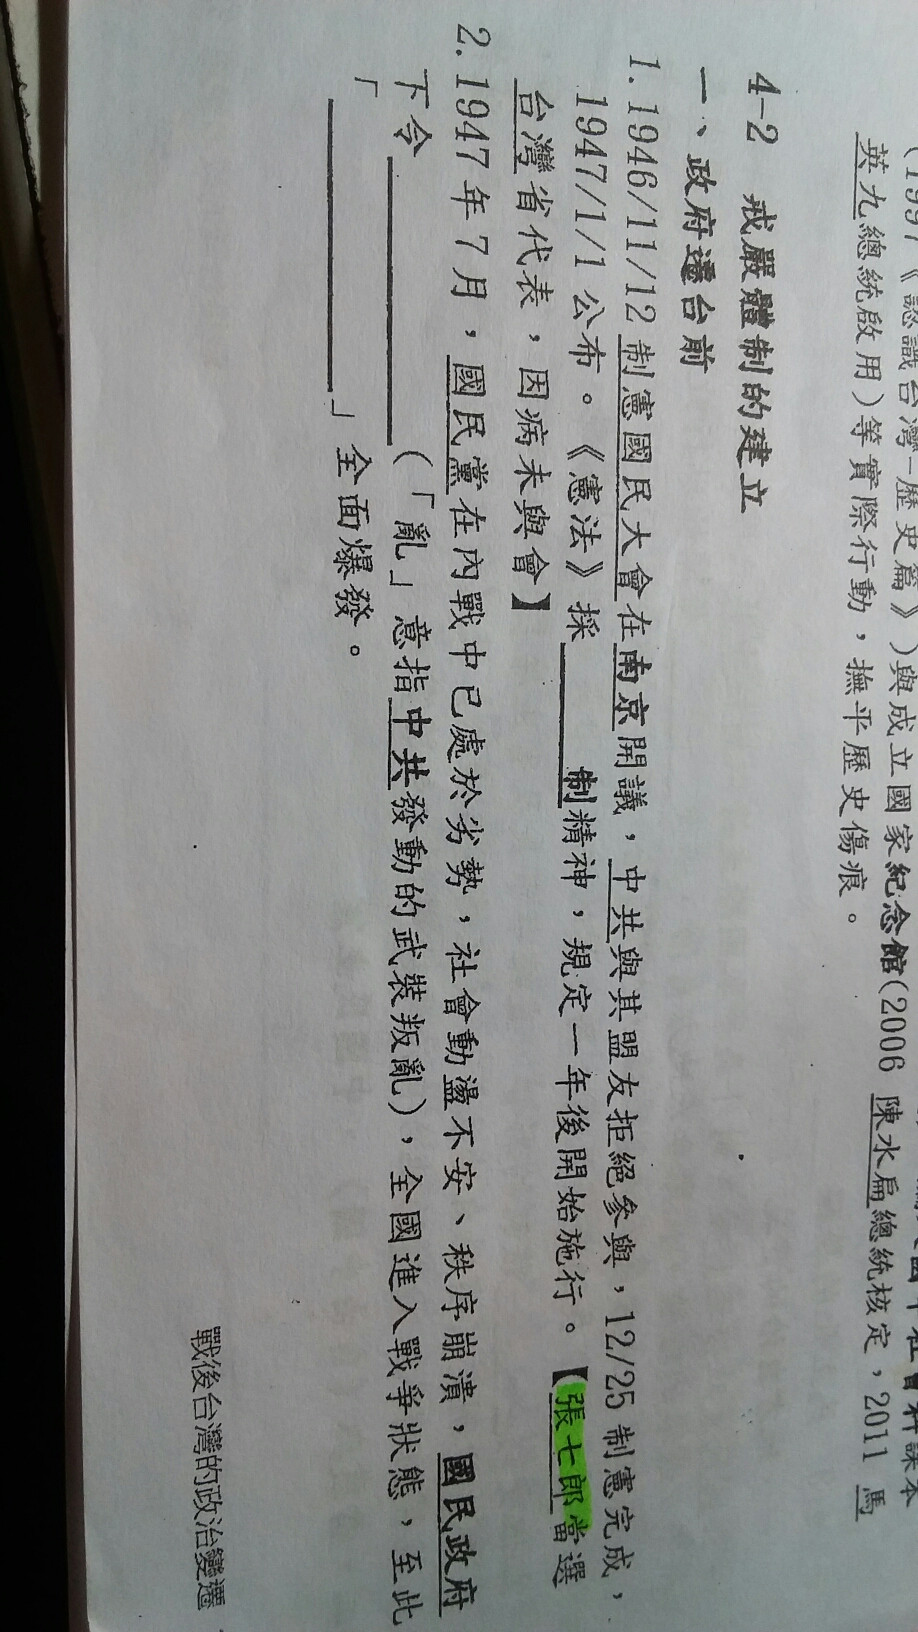 (1997《認識台灣-歷史篇》)與成立國家紀念館(2006 陳水扁總統核定，2011 馬
英九總統啟用)等實際行動，撫平歷史傷痕。
4-2 戒嚴體制的建立
一、政府遷台前
1. 1946/11/12 制憲國民大會在南京開議，中共與其盟友拒絕參與，12/25 制憲完成，
1947/1/1 公布。《憲法》採______制精神，規定一年後開始施行。【(張七郎當選
台灣省代表，因病未與會】
2. 1947年7月，國民黨在內戰中已處於劣勢，社會動盪不安、秩序崩潰，國民政府
下令____________(「亂」意指中共發動的武裝叛亂)，全國進入戰爭狀態，至此
「____________」全面爆發。
戰後台灣的政治變遷